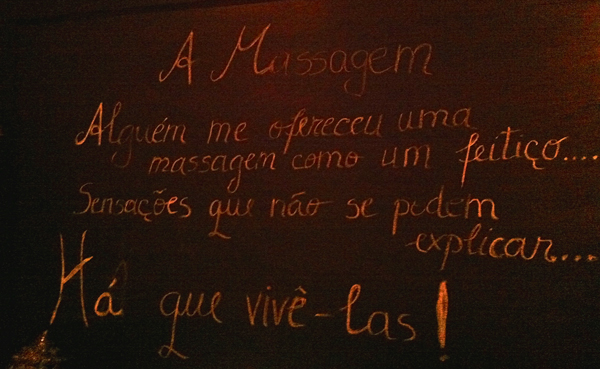 A Massagem
Alguém me ofereceu uma
massagem como um feitiço....
Sensações que não se podem
explicar....
Há que vivê-las!